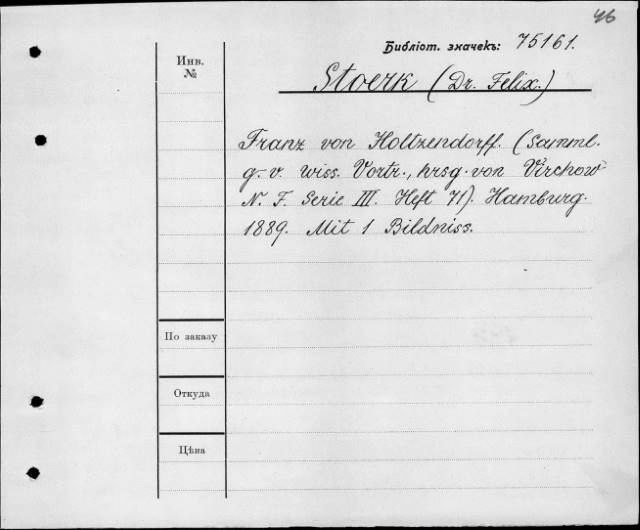 46
Библіот. значекъ: 75161.
Инв.
№
Stoerk (Dr. Felix.)
Franz von Holtzendorff. (Samml.
g. v. wiss. Vortr., hrsg. von Virchow
N. F. Serie III. Heft 71). Hamburg.
1889. Mit 1 Bildniss.
По заказу
Откуда
Цѣна